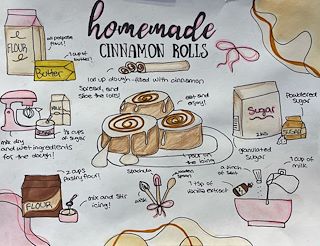 homemade
CINNAMON ROLLS
all purpose
flour!
FLOUR
1 cup of
butter!
Butter
roll up dough filled with cinnamon
Spread, and
slice the rolls!
eat and
enjoy!
Powdered
sugar
Sugar
Sugar
2KG
granulated
sugar
MILK
1/3 cups
of sugar
mix dry
and wet ingredients
for the dough!
pour on
the icing
2 cups
pastry flour!
FLOUR
mix and stir
icing!
Spachula
wooden
spoon
wisk
a pinch of
salt
1 tsp of
vanilla extract
1 cup of
milk